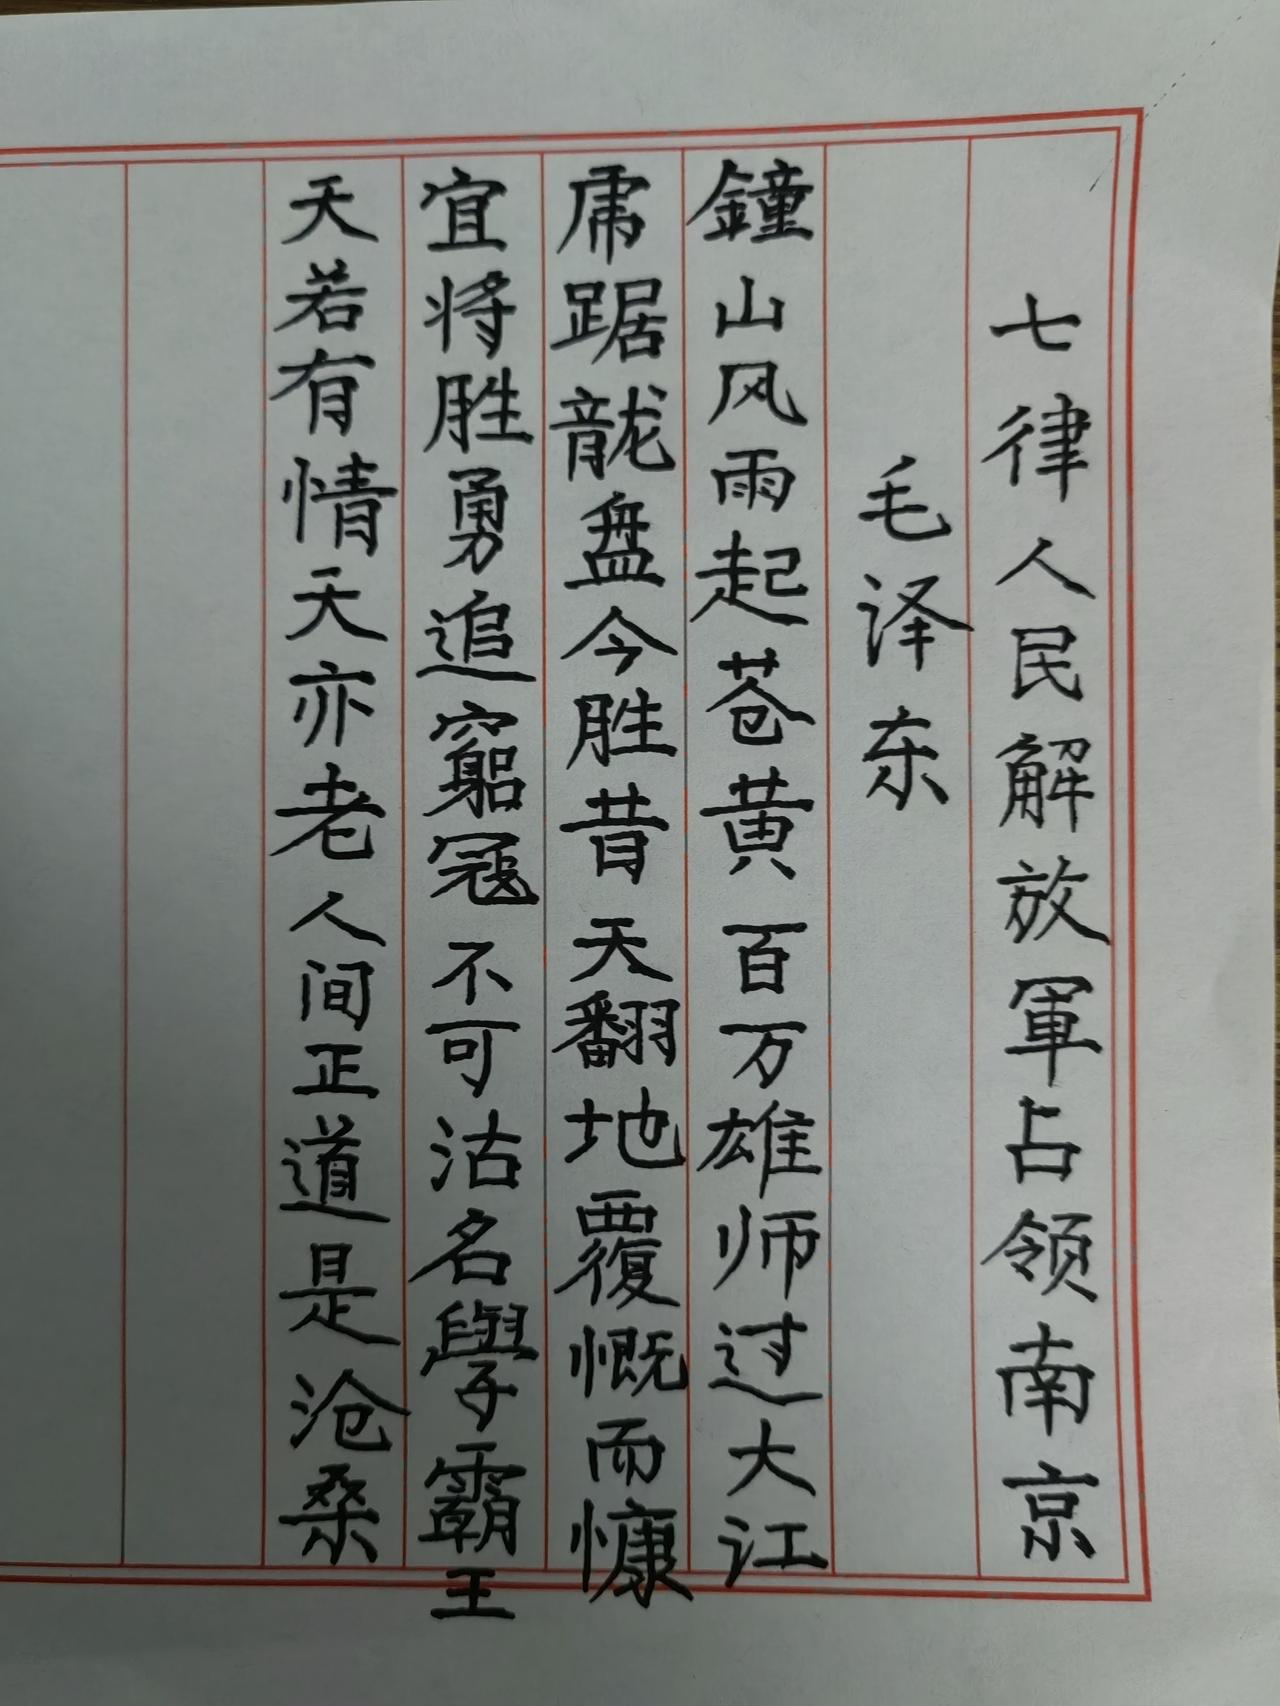 七律人民解放軍占领南京
毛泽东
鐘山风雨起苍黄百万雄师过大江
虎踞龍盘今胜昔天翻地覆慨而慷
宜将胜勇追窮冠不可沽名學霸王
天若有情天亦老人间正道是沧桑